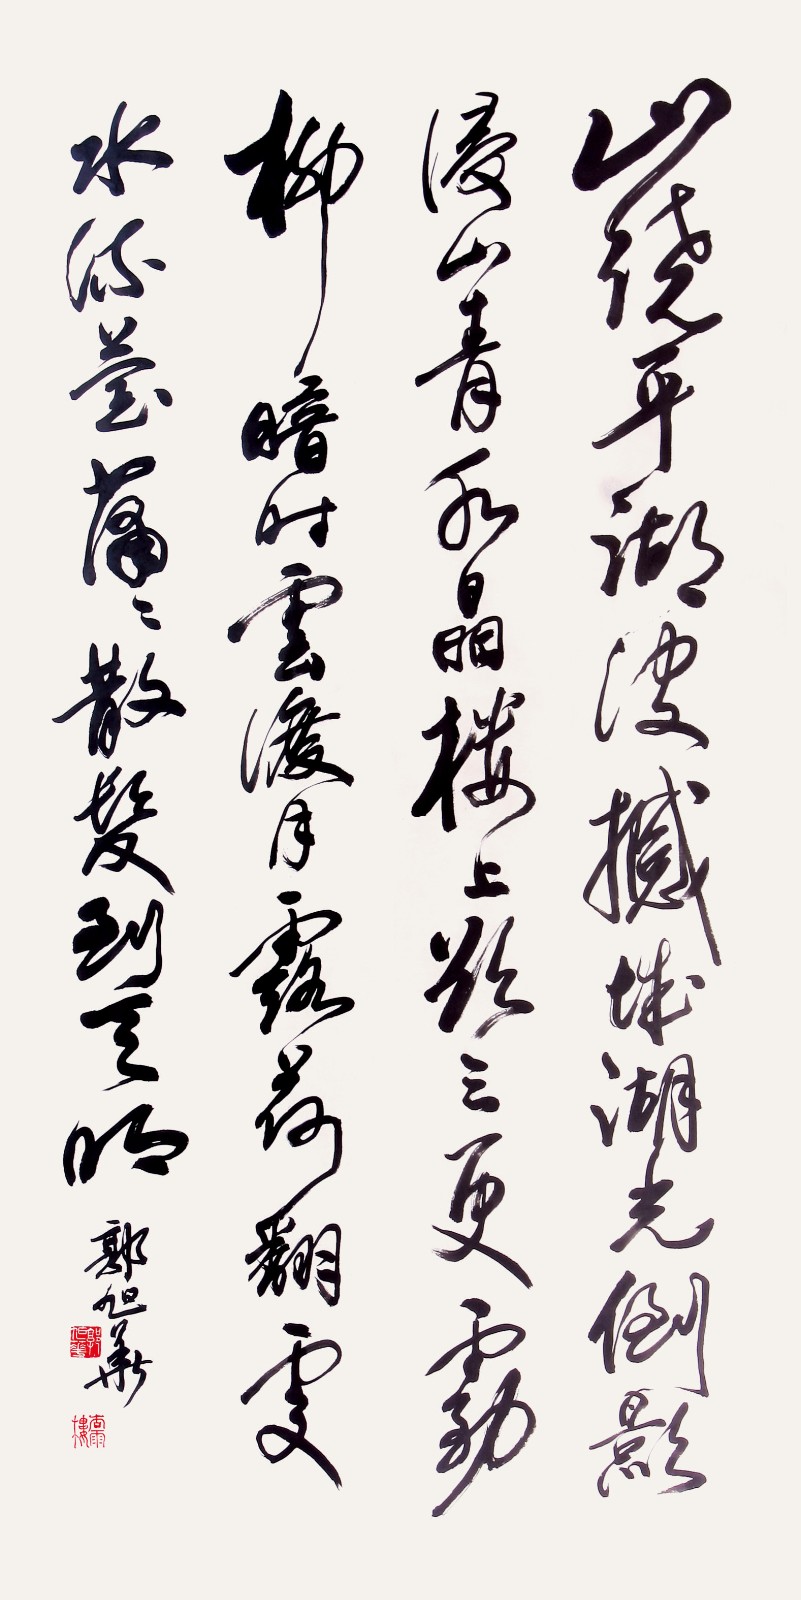 山绕平湖波撼城湖光倒影
浸山青水晶楼上欲三更霧
柳暗时雲渡月露荷翻處
水流萤萧〻散髮到天明
郭旭華